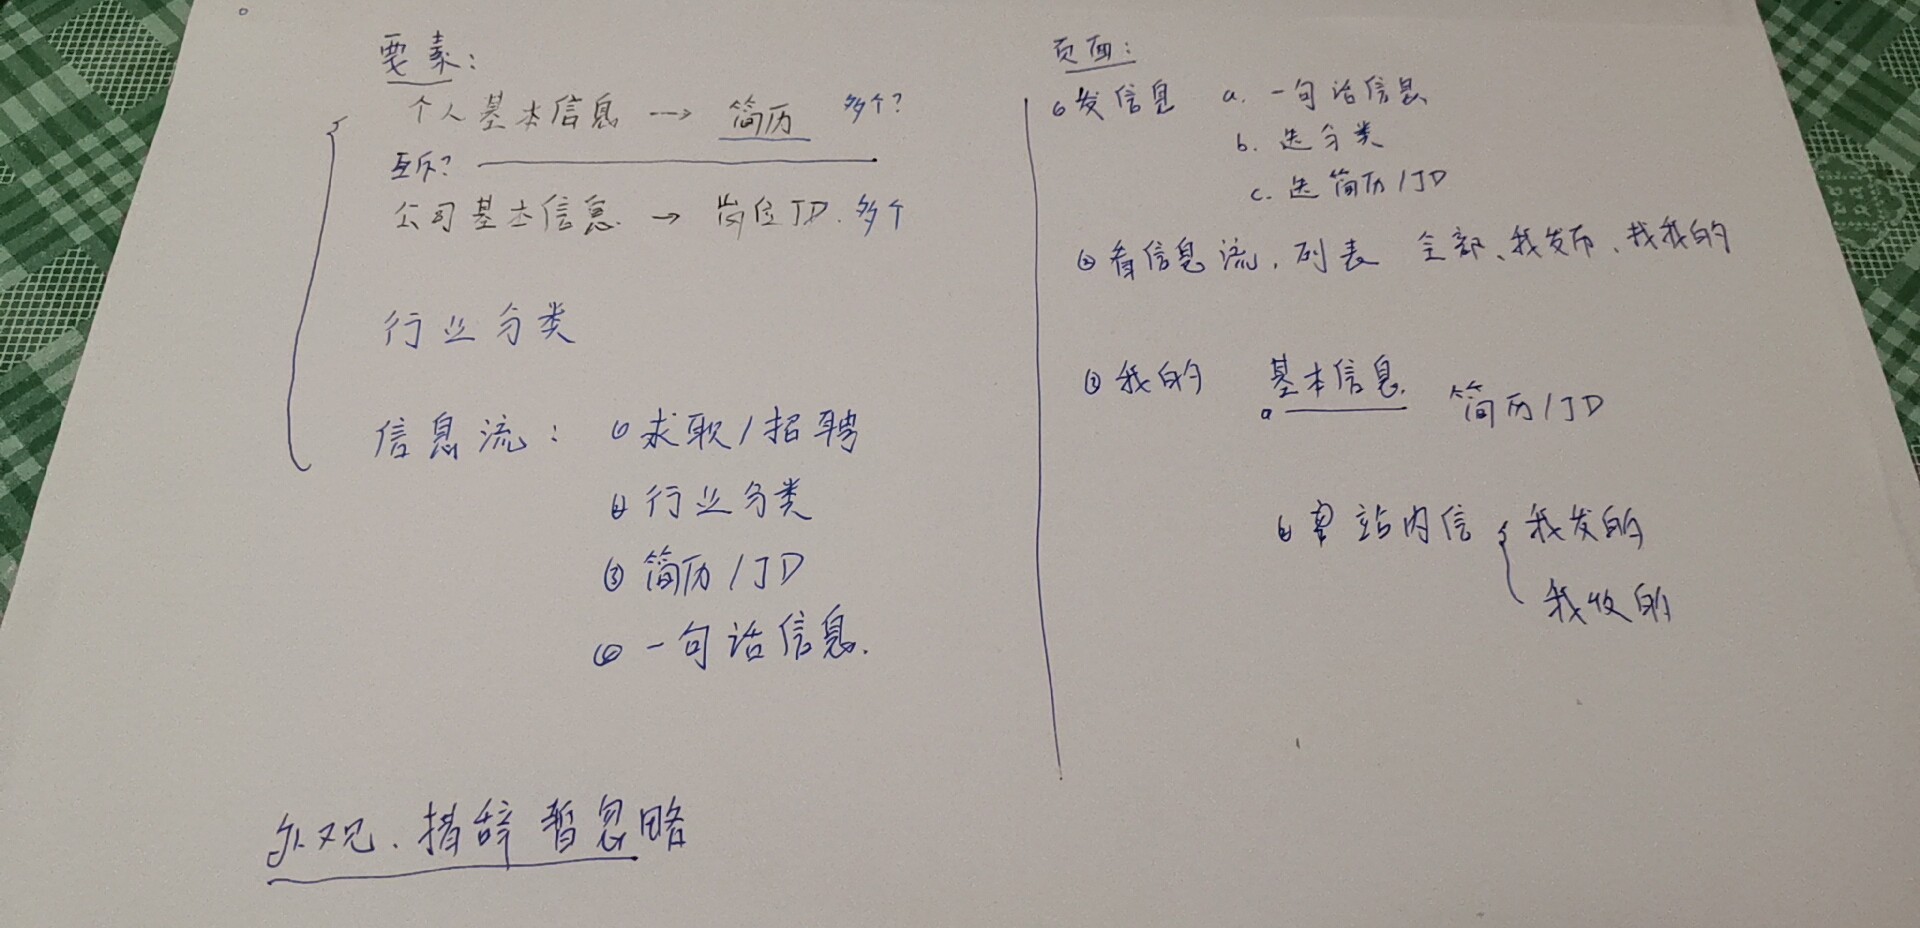 要素:
个人基本信息 → 简历 多个?
互斥?
公司基本信息. → 岗位JD. 多个
行业分类
信息流: ① 求职/招聘
② 行业分类
③ 简历/JD
④ 一句话信息.
外观、措辞暂忽略
页面:
① 发信息 a. 一句话信息
b. 选分类
c. 选简历/JD
② 看信息流, 列表 全部、我发布、找我的
③ 我的 a 基本信息. 简历/JD
b 站内信 { 我发的
我收的